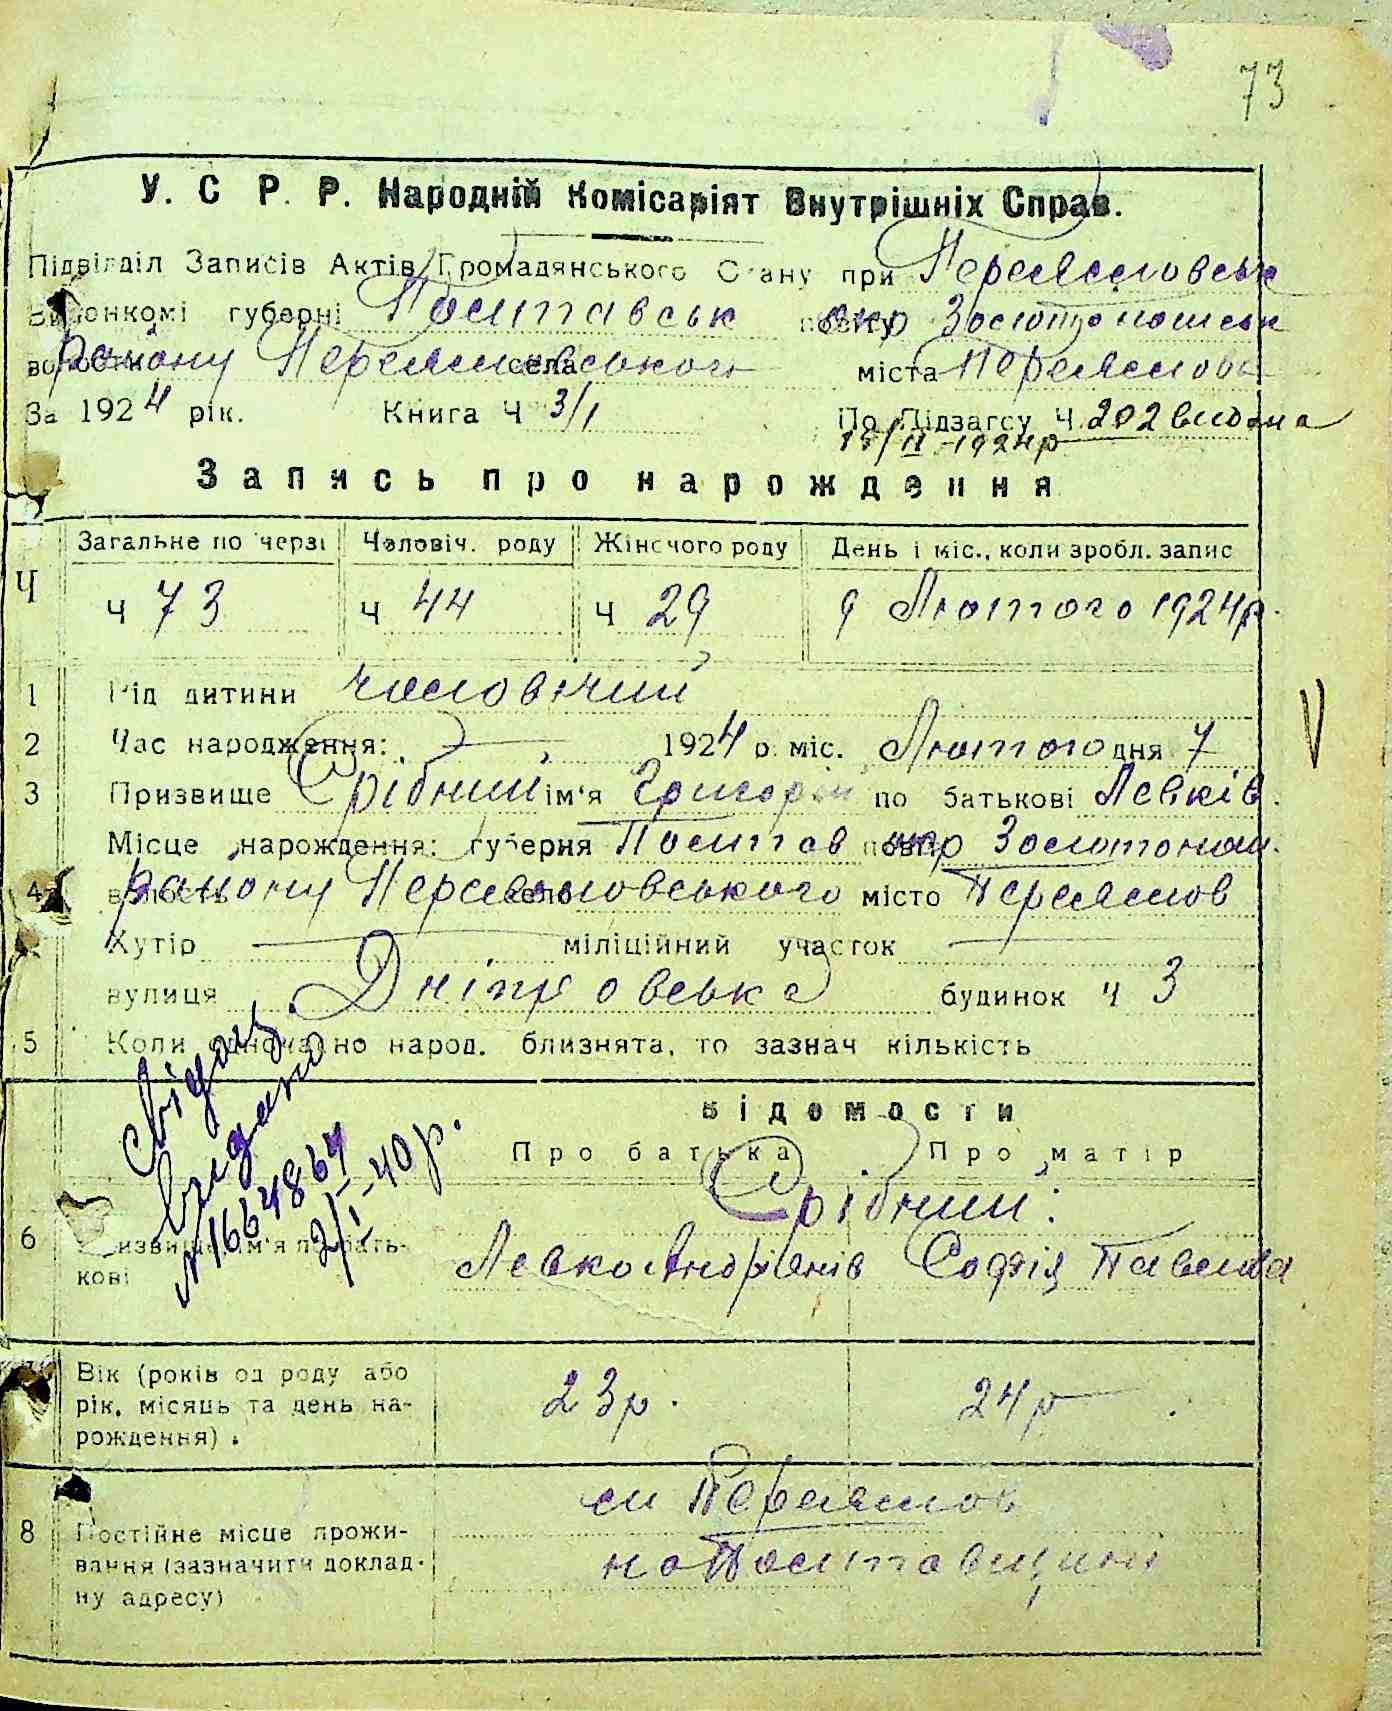 73
У. С Р. Р. Народній Комісаріят Внутрішніх Справ.
Підвідділ Записів Актів Громадянського Стану при Переяславськ
Виконкомі губерні Полтавськ окр Золотоношськ
району Переяславського села міста Переяслова
За 1924 рік. Книга Ч 3/1 По Підзагсу Ч. 202 видана
15/II-1924р
Запись про нарождення
Загальне по черзі Чоловіч. роду Жіночого роду День і міс., коли зробл. запис
Ч ч 73 ч 44 ч 29 9 Лютого 1924р.
1 Рід дитини чоловічий
2 Час народження: 1924 р. міс. Лютого дня 7
3 Призвище Срібний ім'я Григорій по батькові Левків.
Місце нарождення: губерня Полтав окр Золотонош.
4 району Переясловського село місто Переяслов
Хутір — міліційний участок —
вулиця Дніпровська будинок ч 3
5 Коли одночасно народ. близнята, то зазнач кількість
Свідоц. видано N 1664864 2/I-40р.
Відомости
Про батька Про матір
Срібний:
6 Призвище ім'я по бать-
кові Левко Андріянів Софія Павлова
7 Вік (років од роду або
рік, місяць та день на- 23р. 24р
рождення).
м Переяслов
8 Постійне місце прожи-
вання (зазначити доклад- на Полтавщині
ну адресу)